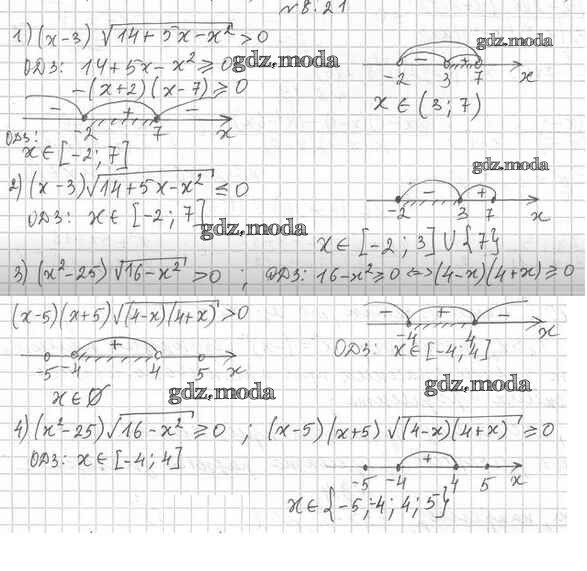 №8.21
1) (x-3) √(14+5x-x²) > 0
ОДЗ: 14+5x-x² ≥ 0
-(x+2)(x-7) ≥ 0
- + -
-2 7 x
ОДЗ:
x∈[-2; 7]
gdz.moda
gdz.moda
- +
-2 3 7 x
x ∈ (3; 7)
2) (x-3)√(14+5x-x²) ≤ 0
ОДЗ: x∈[-2; 7]
gdz.moda
gdz.moda
- +
-2 3 7 x
x∈[-2; 3]∪{7}
3) (x²-25) √(16-x²) > 0 ; ОДЗ: 16-x² ≥ 0 <=> (4-x)(4+x) ≥ 0
(x-5)(x+5)√((4-x)(4+x)) > 0
+
-5 -4 4 5 x
x∈∅
- + -
-4 4 x
ОДЗ: x∈[-4; 4]
gdz.moda
gdz.moda
4) (x²-25)√(16-x²) ≥ 0 ; (x-5)(x+5) √((4-x)(4+x)) ≥ 0
ОДЗ: x∈[-4; 4]
+
-5 -4 4 5 x
x∈{-5; -4; 4; 5}